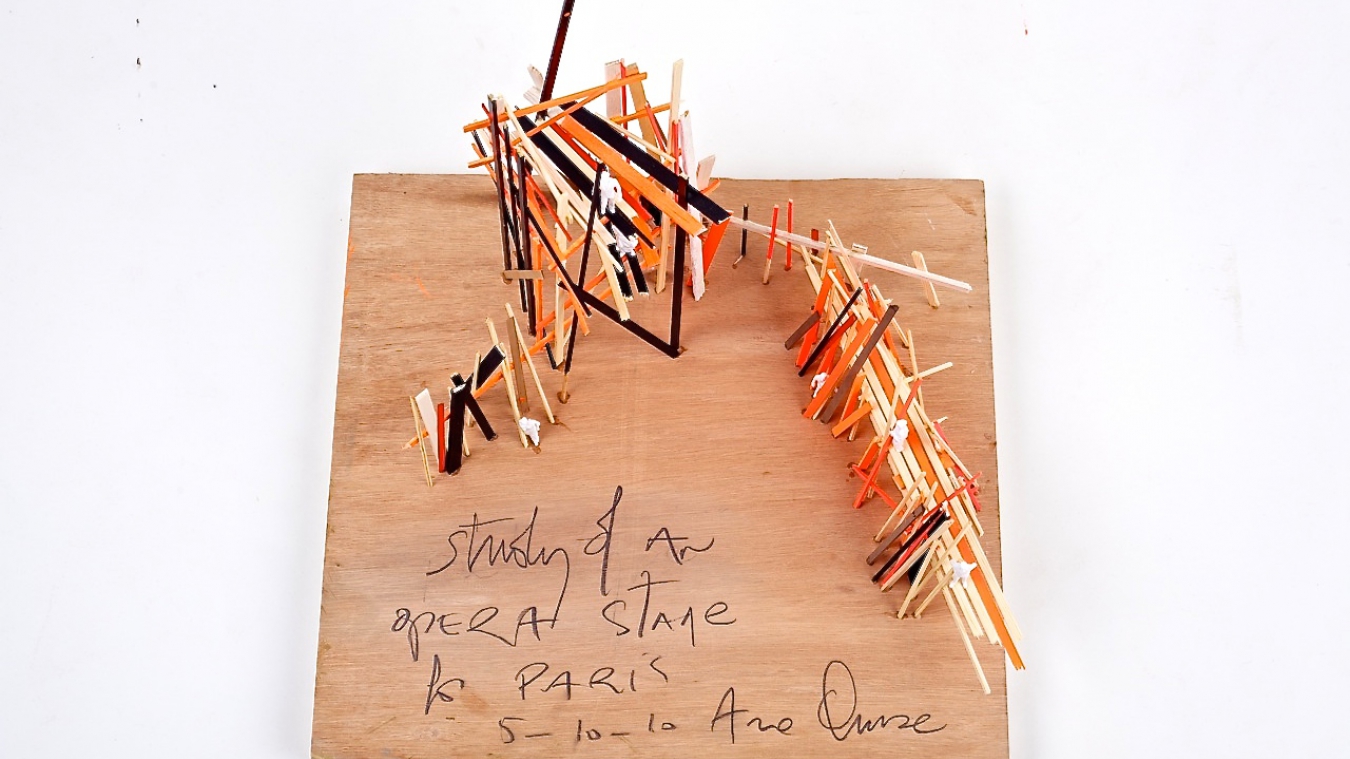 study of An
OPERA STAGE
for PARIS
5-10-10 Arne Quinze